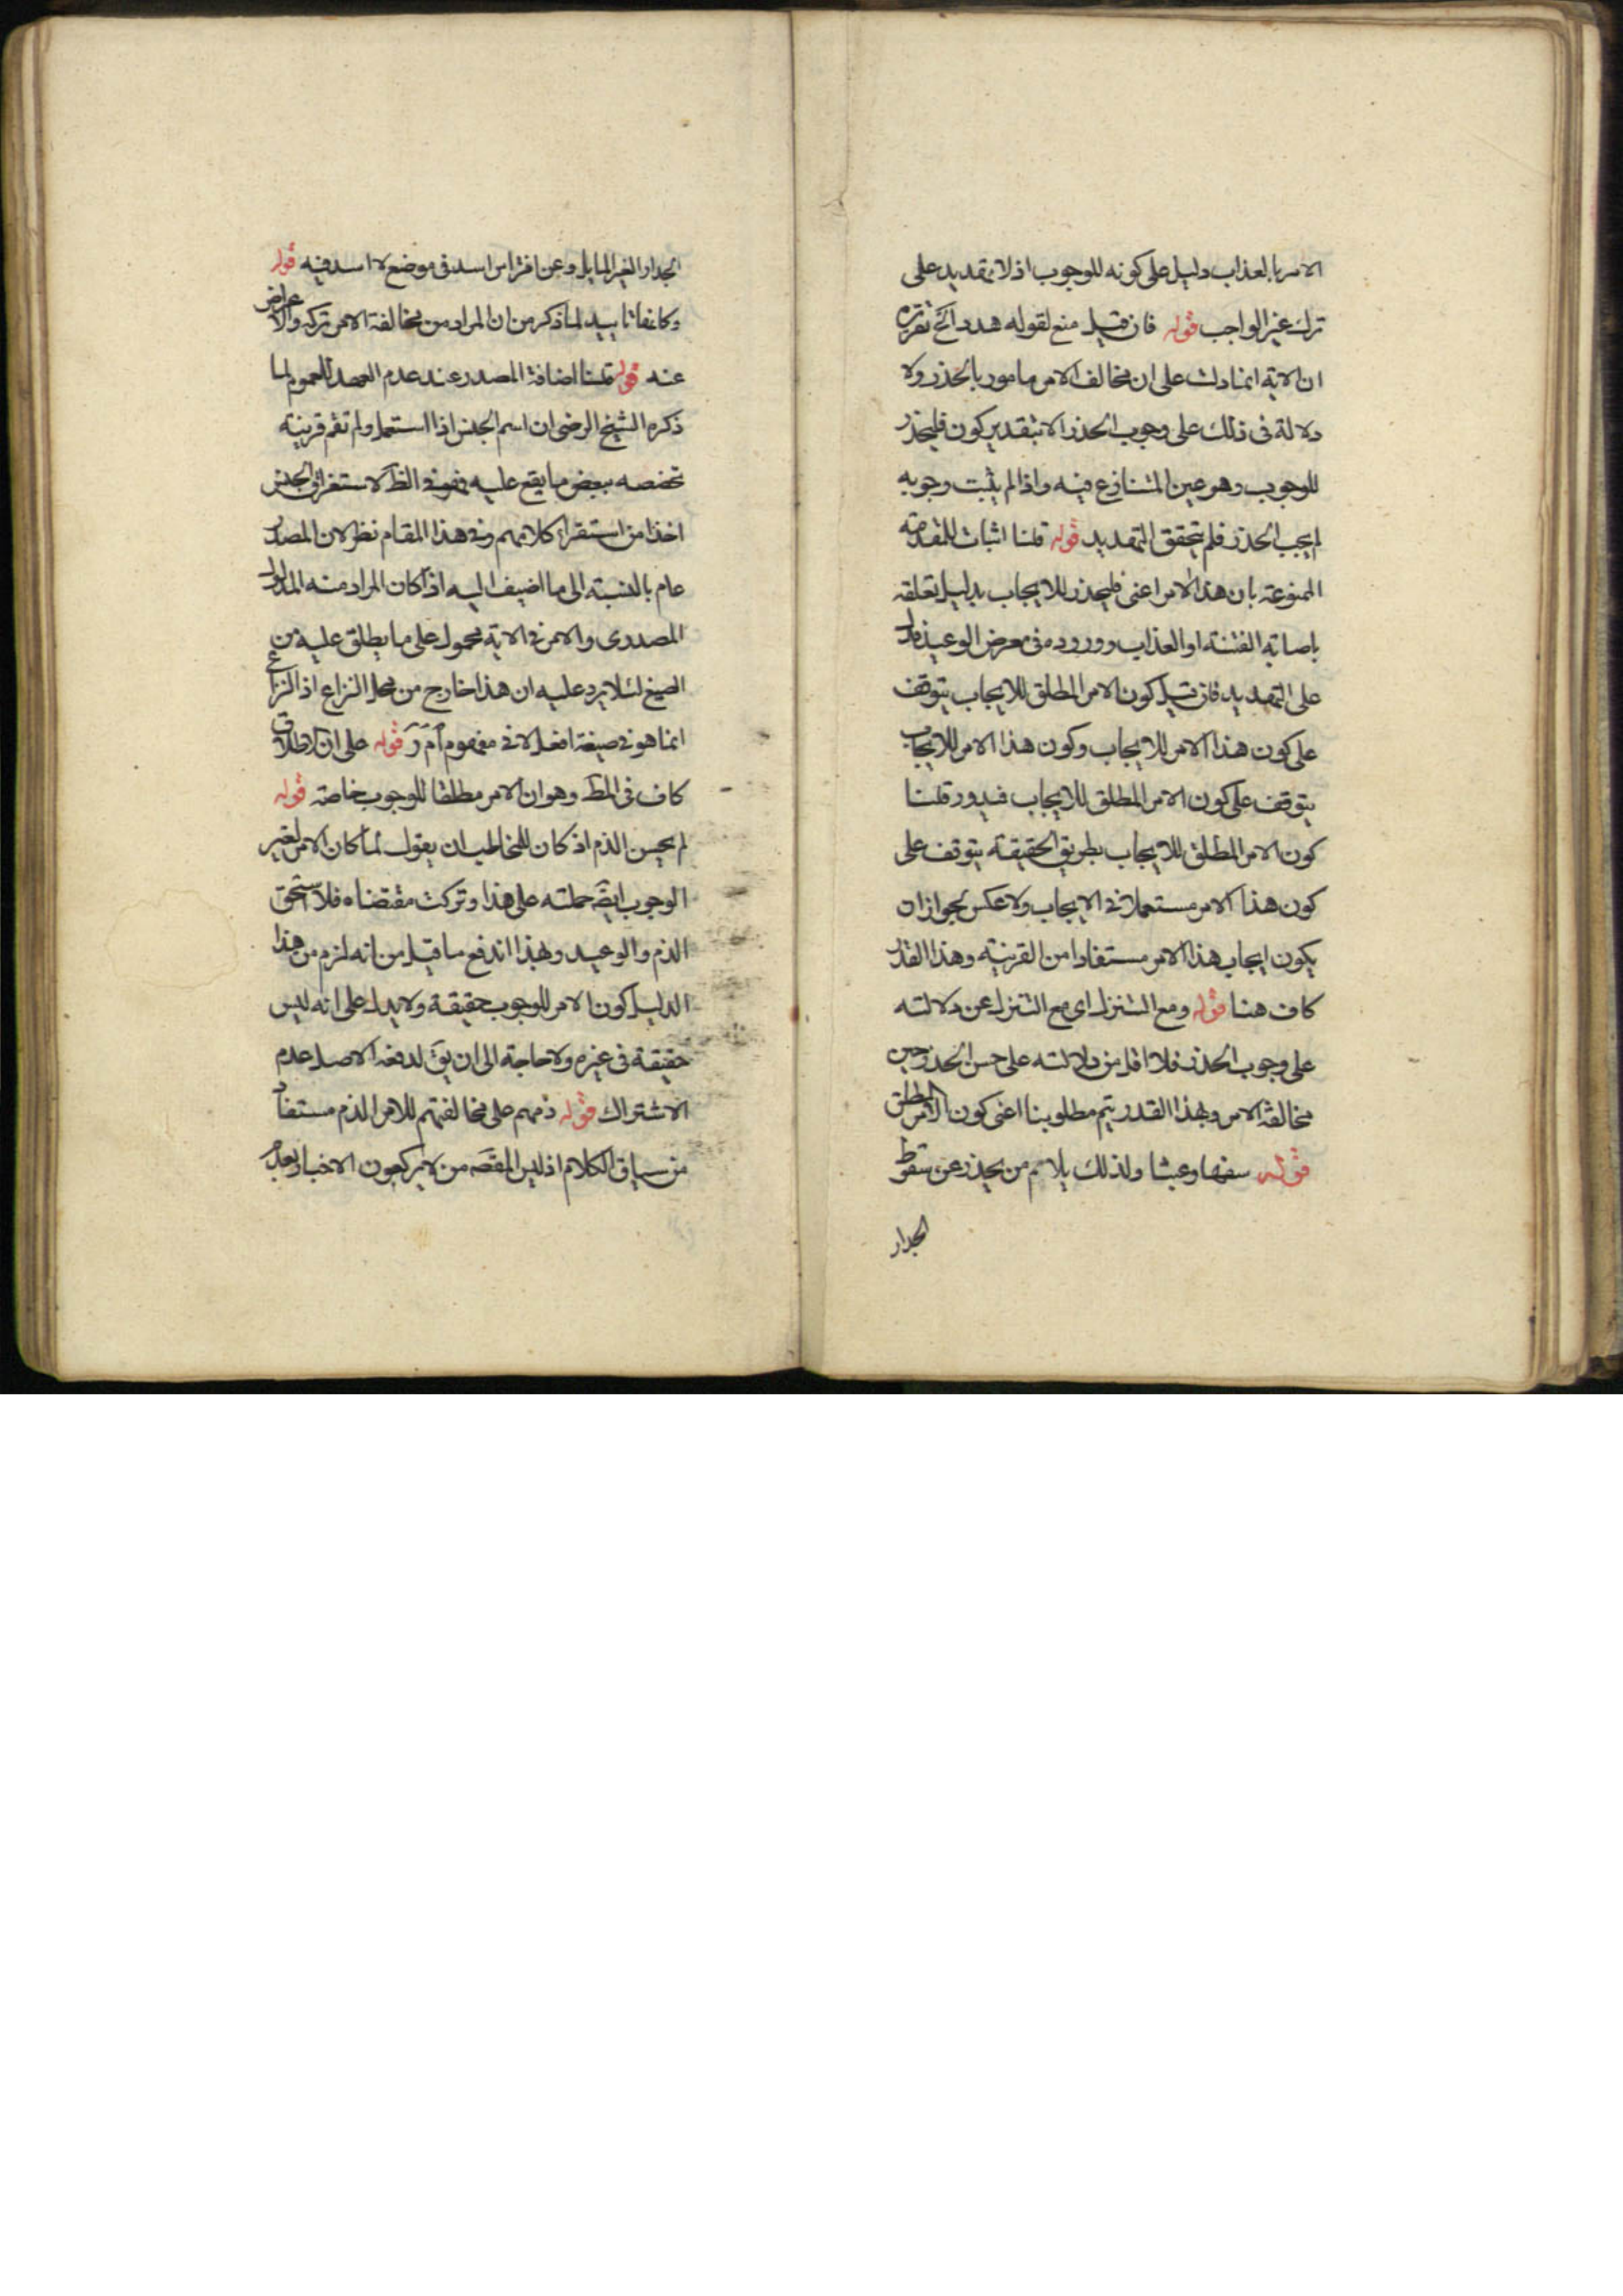 الامر بالعذاب دليل على كونه للوجوب اذ لا تهديد على
ترك غير الواجب قوله فان قيل منع لقوله هدد الخ تقريره
ان الاية انما دلت على ان مخالف الامر مامور بالحذر ولا
دلالة فى ذلك على وجوب الحذر الا بتقدير كون فليحذر
للوجوب وهو عين المتنازع فيه واذا لم يثبت وجوبه
لم يجب الحذر فلم يتحقق التهديد قوله قلنا اثبات للمقدمة
الممنوعة بان هذا الامر اعنى فليحذر للايجاب بدليل تعلقه
باصابة الفتنة او العذاب ووروده فى معرض الوعيد فدل
على التهديد فان قيل كون الامر المطلق للايجاب يتوقف
على كون هذا الامر للايجاب وكون هذا الامر للايجاب
يتوقف على كون الامر المطلق للايجاب فيدور قلنا
كون الامر المطلق للايجاب بطريق الحقيقة يتوقف على
كون هذا الامر مستعملا فى الايجاب ولا عكس لجواز ان
يكون ايجاب هذا الامر مستفادا من القرينة وهذا القدر
كاف هنا قوله ومع التنزل اى مع التنزل عن دلالته
على وجوب الحذر فلا اقل من دلالته على حسن الحذر حين
مخالفة الامر وبهذا القدر يتم مطلوبنا اعنى كون الامر المطلق
قوله سفها وعبثا ولذلك يلام من يحذر عن سقوط
الجدار
الجدار الغير المايل وعن افتراس اسد فى موضع لا اسد فيه قوله
وكانها تاييد لما ذكر من ان المراد من مخالفة الامر تركه والاعراض
عنه قوله قلنا اضافة المصدر عند عدم العهد للعموم لما
ذكره الشيخ الرضى ان اسم الجنس اذا استعمل ولم تقم قرينة
تخصصه ببعض ما يقع عليه فهو فى الظ لاستغراق الجنس
اخذا من استقراء كلامهم وفى هذا المقام نظر لان المصدر
عام بالنسبة الى ما اضيف اليه اذا كان المراد منه المدلول
المصدرى والامر فى الاية محمول على ما يطلق عليه من
الصيغ لئلا يرد عليه ان هذا خارج من محل النزاع اذ النزاع
انما هو فى صيغة افعل لا فى مفهوم أ م ر قوله على ان الاطلاق
كاف فى المط وهو ان الامر مطلقا للوجوب خاصة قوله
لم يحسن الذم اذ كان للمخاطب ان يقول لما كان الامر لغير
الوجوب ايضه حملته على هذا وتركت مقتضاه فلا استحق
الذم والوعيد وبهذا اندفع ما قيل من انه لزم من هذا
الدليل كون الامر للوجوب حقيقة ولا يدل على انه ليس
حقيقة فى غيره ولا حاجة الى ان يق لدفعه الاصل عدم
الاشتراك قوله ذمهم على مخالفتهم للامر الذم مستفاد
من سياق الكلام اذ ليس المقصه من لا يركعون الاخبار بعدم